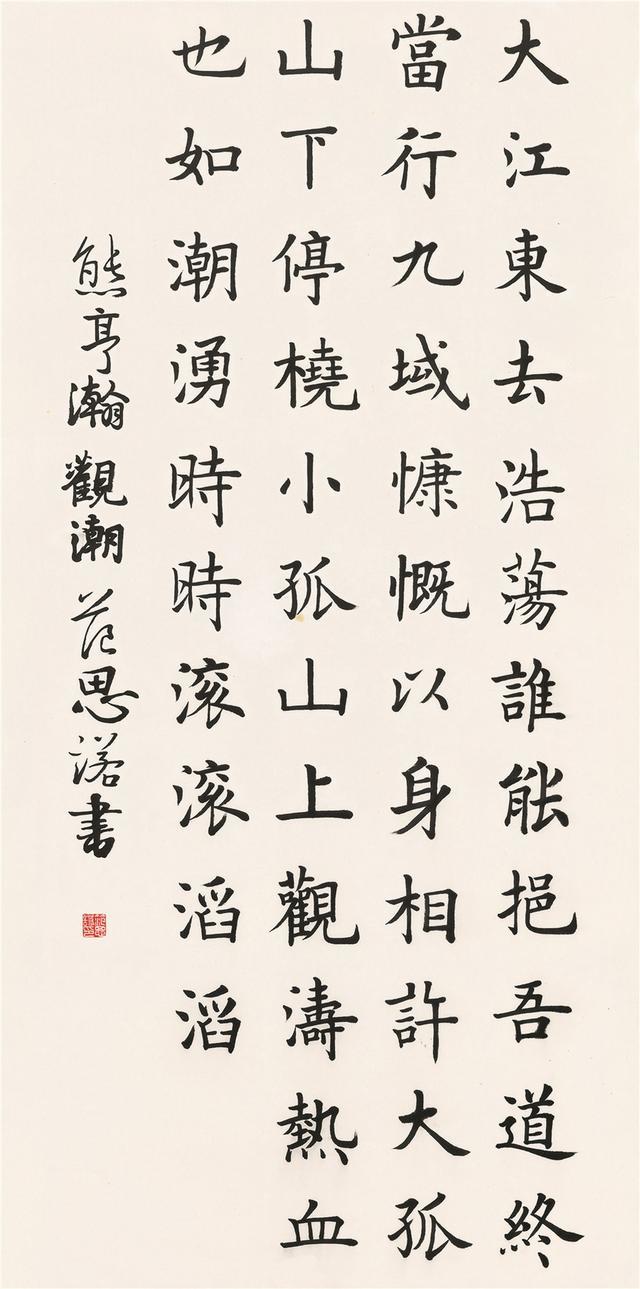 大江東去浩蕩誰能挹吾道終
當行九域慷慨以身相許大孤
山下停橈小孤山上觀濤熱血
也如潮湧時時滚滚滔滔
熊亨瀚觀潮范思諾書